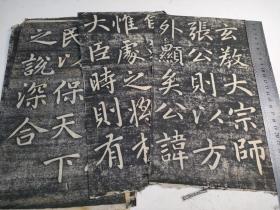 玄教大宗師
張公則以方
外顯矣公諱
惟處之將相
大臣時則有
民以保天下
之說深合